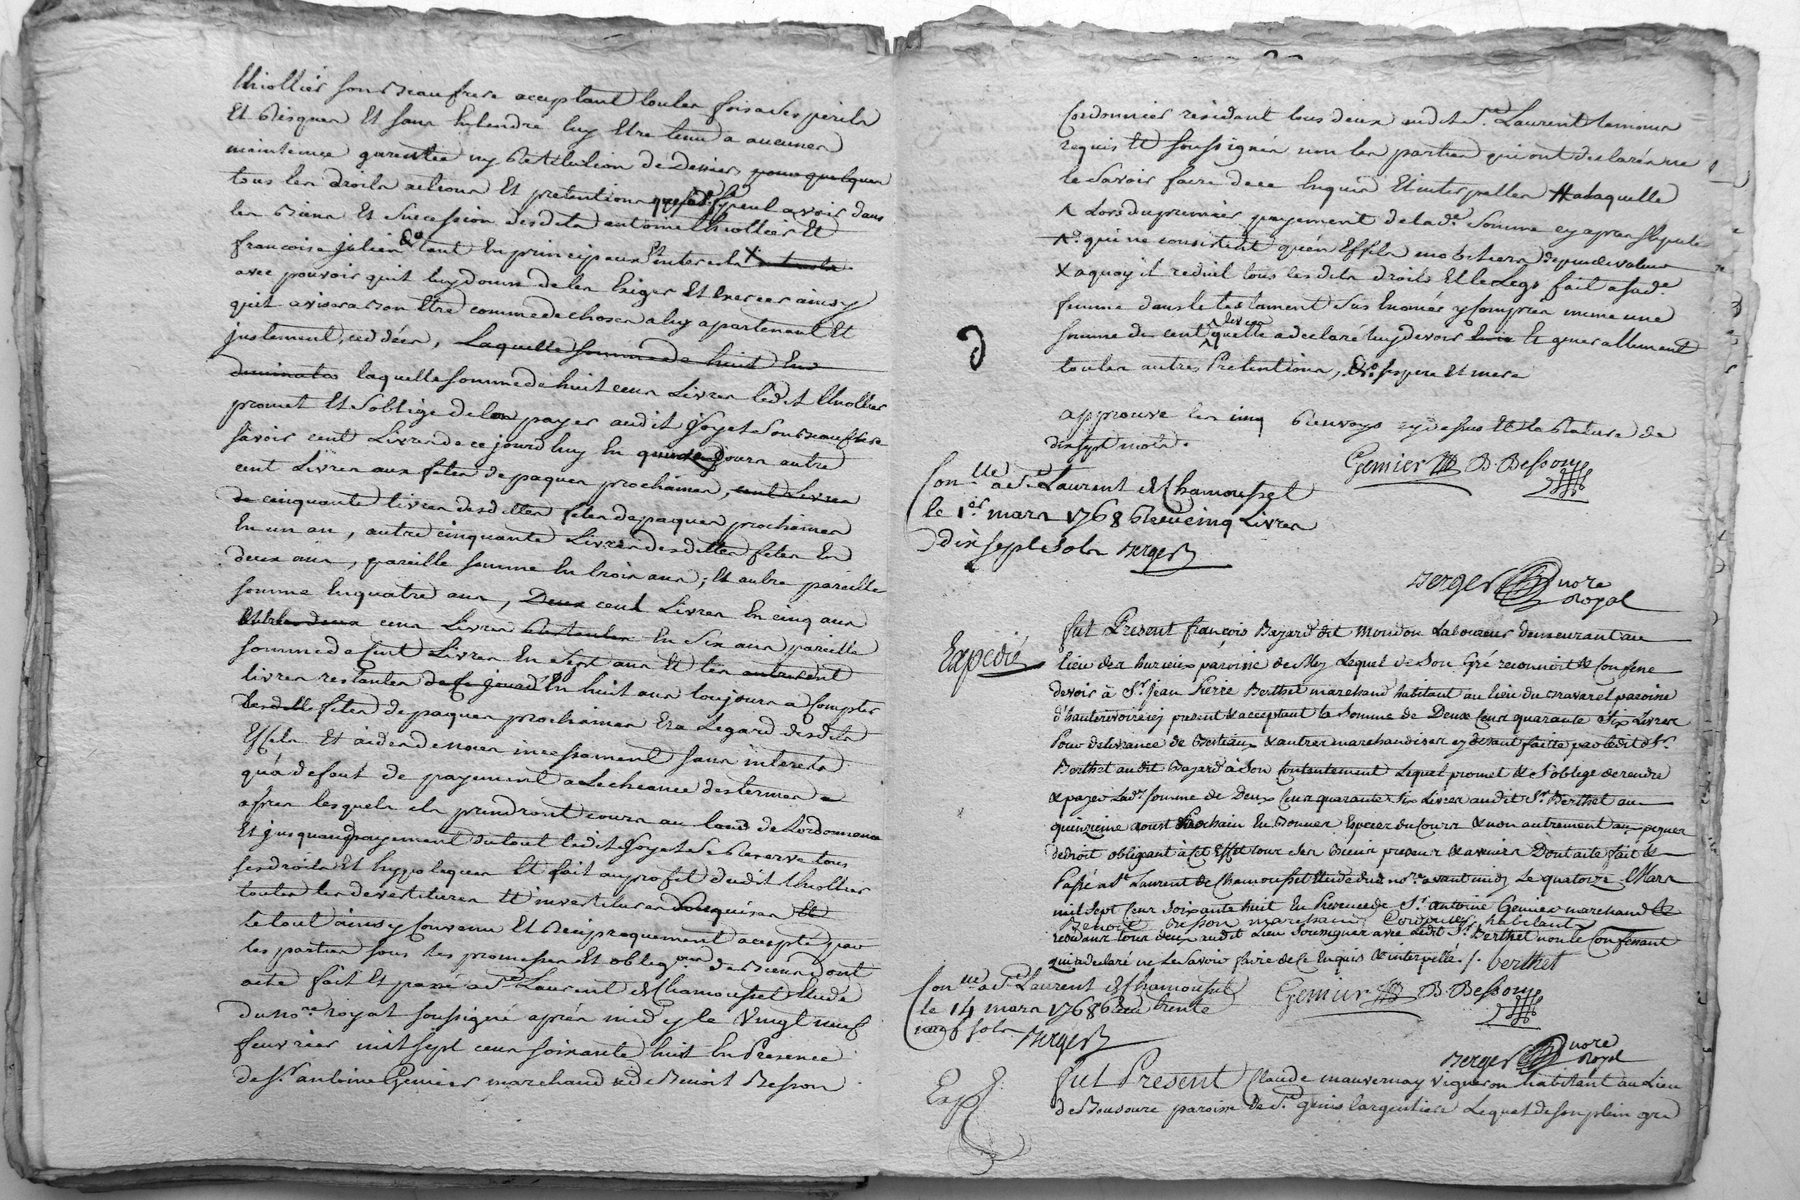 thiollier son Beaufrere acceptant toutes fois a ses perils
Et Risques Et sans Entendre luy Etre tenu a aucunes
maintenue garentie ny Restitution de Deniers pour quelques
tous les droits actions Et pretentions peut avoir dans
les Biens Et Succession desdits antoine thiollier Et
francoise Julien tant En principeaux Et interests
avec pouvoir quil luy donne de les Exiger Et Exercer ainsy
quil avisera Bon Etre comme de choses a luy apartenant Et
justement cedées, Laquelle somme de huit Cens
laquelle somme de huit cens Livres ledit thiollier
promet Et s'oblige de payer audit joyet son Beaufrere
savoir cent Livres de ce jourd'huy En quinze jours autre
cent Livres aux fetes de paques prochaines, cent Livres
de cinquante livres desdittes fetes de paques prochaines
En un an, autre cinquante Livres desdittes fetes En
deux ans, pareille somme En trois ans, Et autre pareille
somme En quatre ans, Deux cent Livres En cinq ans
cens Livres En Six ans pareille
somme de Cent Livres En Sept ans Et les
livres restantes En huit ans toujours a Compter
fetes de paques prochaines Et a Legard desdits
Effets Et aisdendenoces incessament sans interets
qu'a defaut de payement a Lecheance des termes
apres lesquels ils prendront cours au taux de Lordonnance
Et jusquau payement du tout ledit joyet se Reserve tous
ses droits Et hypoteques Et fait au profit dudit thiollier
toutes les devestitures Et investitures Requises
le tout ainsy Convenu Et Reciproquement accepté par
les parties sous les promesses Et oblig.ons de Biens dont
acte fait Et passé a St. Laurent de Chamousset Etude
du no.re royal soussigné aprés midy le Vingt neuf
feuvrier mil sept cens soixante huit En Presence
de Sr. antoine Gemier marchand et de Benoit Besson
Cordonnier residant tous deux audit St. Laurent temoins
requis Et soussignés non les parties qui ont declarés ne
le Savoir faire de ce Enquis Et interpellés a laquelle
Lors du premier payement de lad.e Somme cy apres stipulé
qui ne consistent qu'en Effets mobiliers de peu de valeur
X a quoy il reduit tous lesdits droits Et le Legs fait a sad.e
femme dans le testament sus Enoncé y Compris meme une
somme de cent livres quelle a declaré luy devoir Et generallement
toutes autres Pretentions, sespere Et mere
approuvé les cinq Renvoys cy dessus Et la Rature de
dixsept mots.
Gemier B Besson
Con.lle a St. Laurent de Chamousset
le 1.er mars 1768 Reçu cinq Livres
dix sept sols Berger
Berger no.re
Royal
Expedié
fut Present françois Bazard dit Moudon Laboureur demeurant au
lieu des hurieux paroisse de Lequel de Son Gré reconnoit & Confesse
devoir à Sr. Jean Pierre Berthet marchand habitant au lieu du Travarel paroisse
d'hauterivoire icy present & acceptant la Somme de Deux Cens quarante Six Livres
Pour delivrance de Bestiaux & autres marchandises cy devant faitte par ledit Sr.
Berthet audit Bazard à Son Contentement Lequel promet & S'oblige de rendre
& payer Lad.e Somme de Deux Cens quarante Six Livres audit Sr. Berthet au
quinzieme aoust Prochain En Bonnes Especes du Cours & non autrement au
de droit obligeant à cet Effet tous Ses Biens presens & avenirs Dont acte fait &
Passé a St. Laurent de Chamousset Etude du no.re avant midy Le quatorze Mars
mil Sept Cens Soixante huit En Presence de Sr. antoine Gemier marchand &
Benoit Besson marchand Cordonnier habitants
residants tous deux audit Lieu Soussignés avec Ledit Sr. Berthet non le Confessant
qui a declaré ne Le Savoir faire de Ce Enquis & interpellé /. berthet
Gemier B. Besson
Con.lle a St. Laurent de Chamousset
le 14 mars 1768 Reçu trente
neuf sols Berger
Berger no.re
Royal
Exp
fut Present Claude mauvernay Vigneron habitant au Lieu
de Bousoure paroisse de St. genis largentiere Lequel de son plein gre